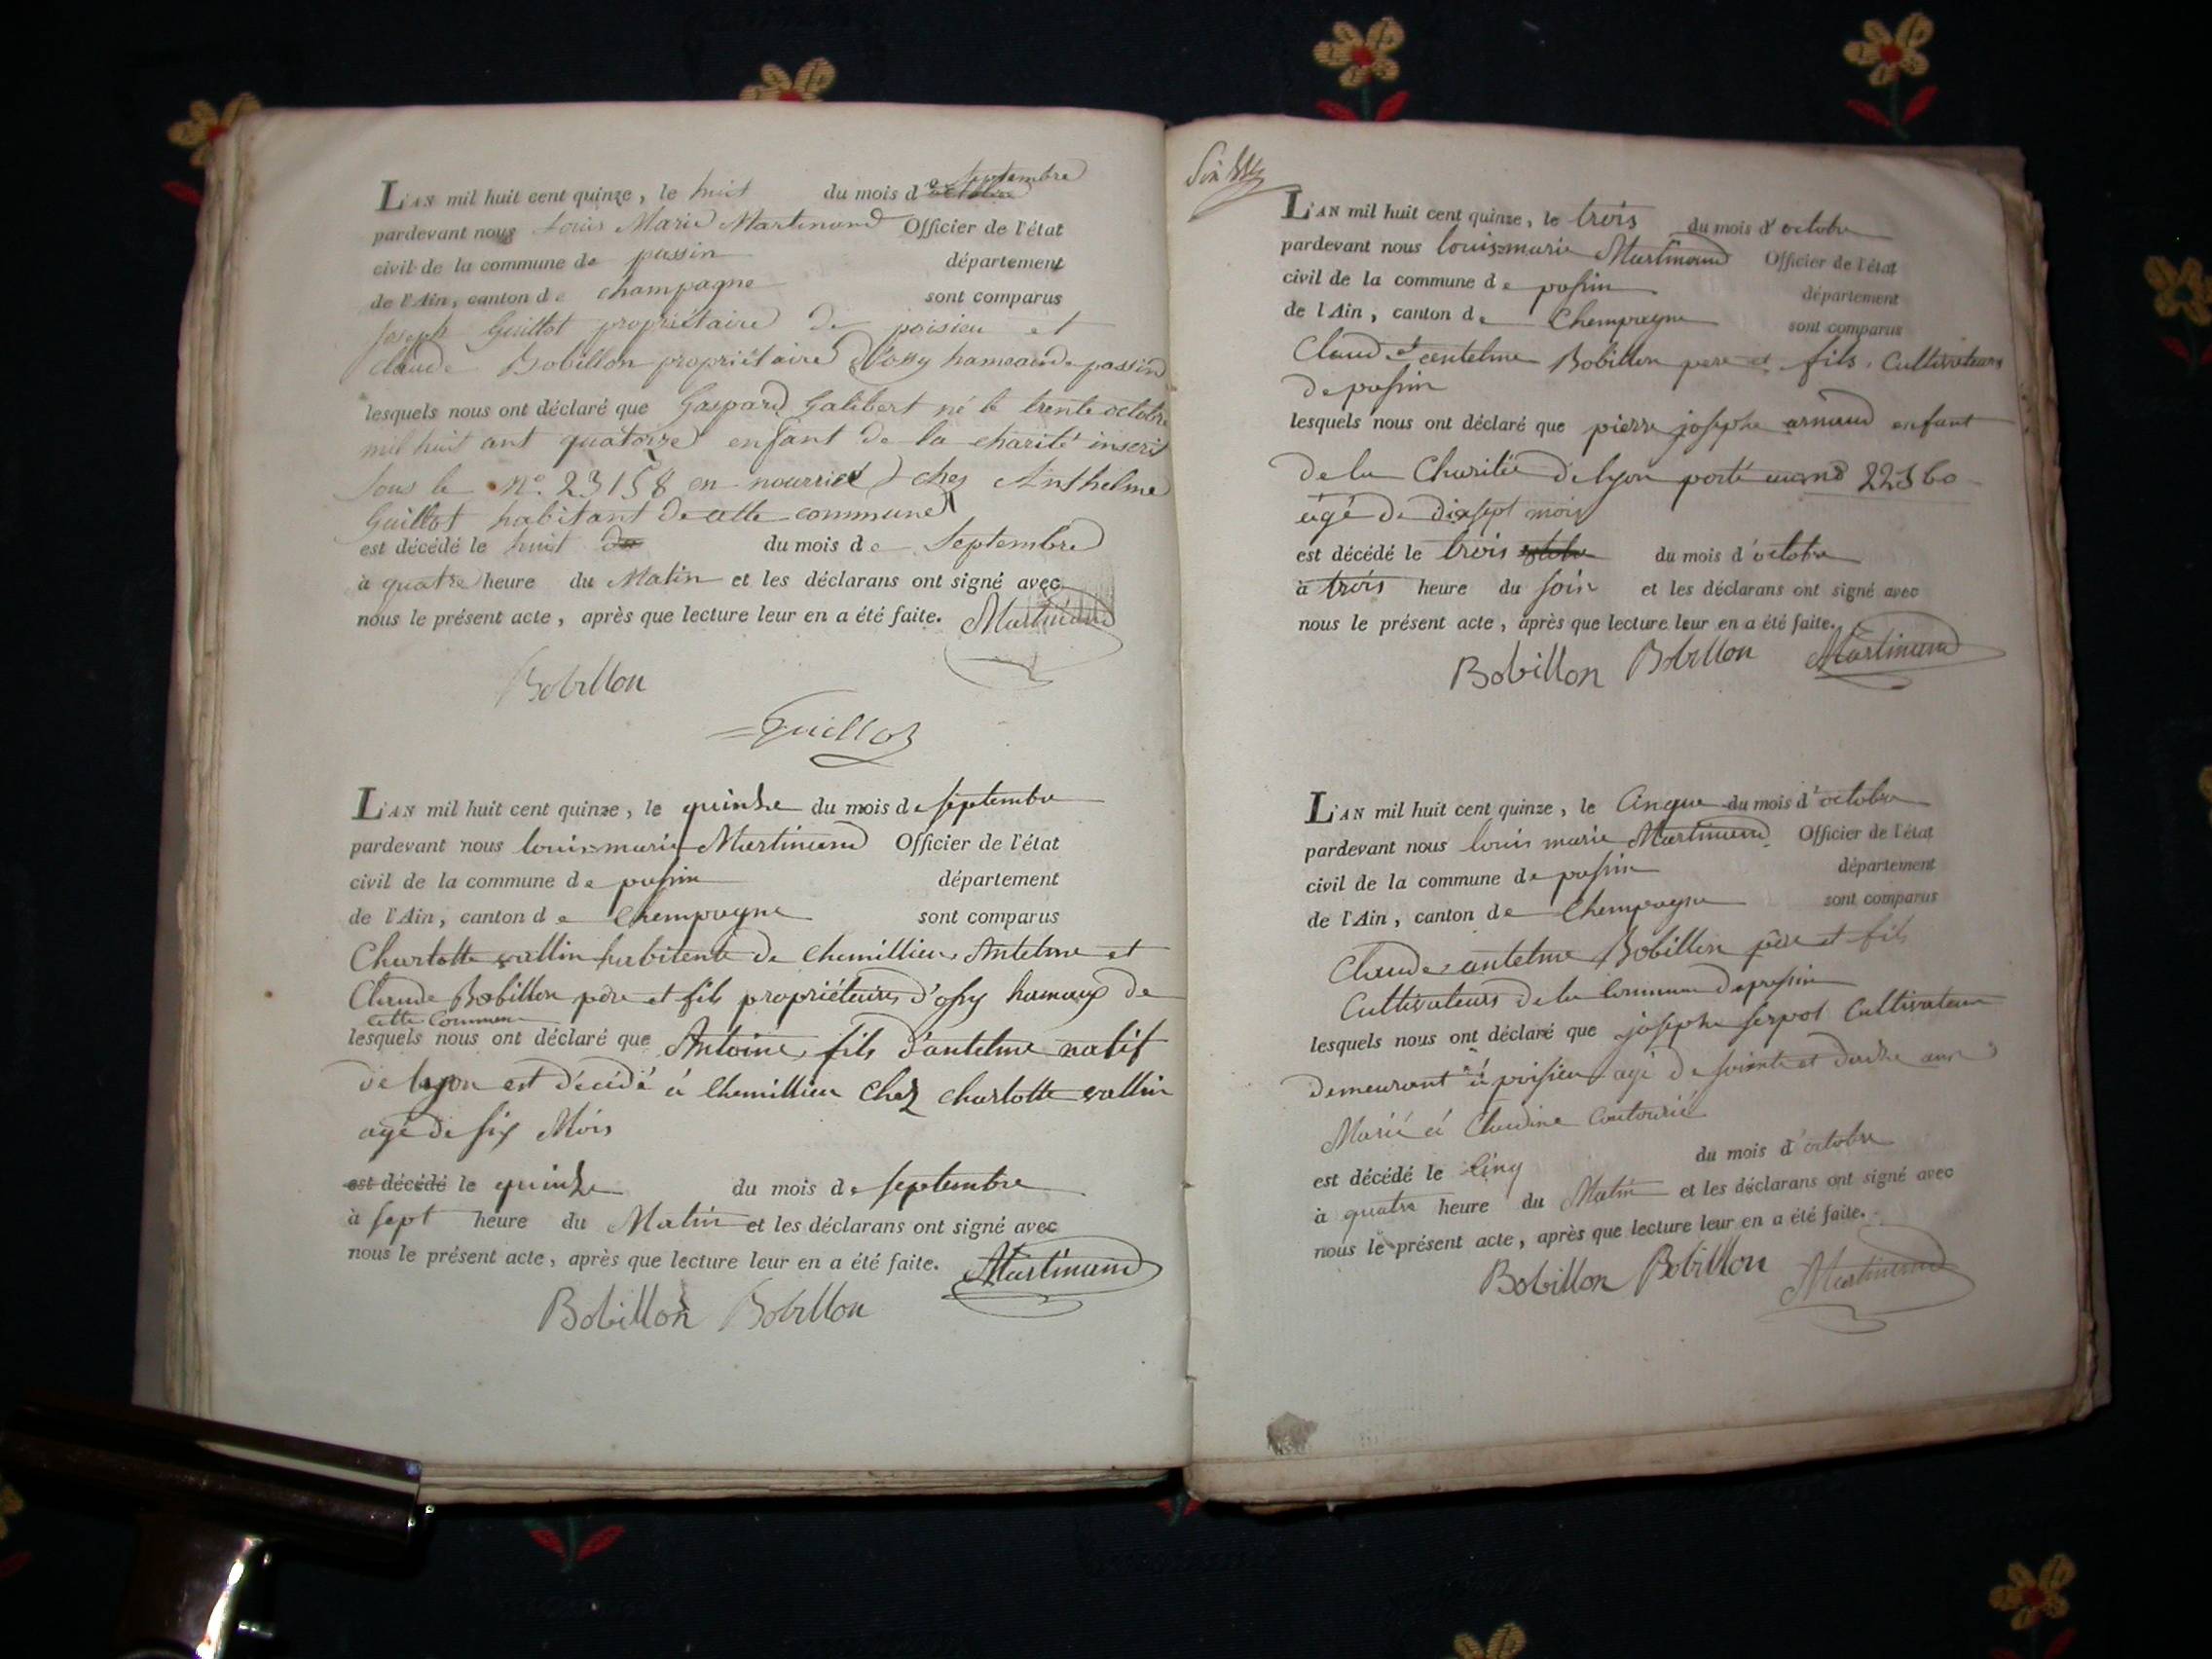 L'AN mil huit cent quinze, le huit du mois de septembre
pardevant nous Louis Marie Martinand Officier de l'état
civil de la commune de passin département
de l'Ain, canton de champagne sont comparus
Joseph Guillot propriétaire de poisieu et
claude Bobillon propriétaire d'ossy hameau de passin
lesquels nous ont déclaré que Gaspard Galibert né le trente octobre
mil huit cent quatorze enfant de la charité inscrit
sous le n°. 23158 en nourrice chez Anthelme
Guillot habitant de cette commune
est décédé le huit du mois de Septembre
à quatre heure du Matin et les déclarans ont signé avec
nous le présent acte, après que lecture leur en a été faite. Martinand
Bobillon
Guillot
L'AN mil huit cent quinze, le quinze du mois de septembre
pardevant nous louis marie Martinand Officier de l'état
civil de la commune de passin département
de l'Ain, canton de Champagne sont comparus
Charlotte vallin habitente de Chemillieu, Antelme et
Claude Bobillon père et fils propriétaires d'ossy hamaux de
cette Commune
lesquels nous ont déclaré que Antoine, fils d'antelme natif
de lyon est décédé à Chemillieu Chez charlotte vallin
agé de six Mois
est décédé le quinze du mois de septembre
à sept heure du Matin et les déclarans ont signé avec
nous le présent acte, après que lecture leur en a été faite. Martinand
Bobillon Bobillon
L'AN mil huit cent quinze, le trois du mois d'octobre
pardevant nous louis marie Martinand Officier de l'état
civil de la commune de passin département
de l'Ain, canton de Champagne sont comparus
Claude et antelme Bobillon pere et fils, Cultivateurs
de passin
lesquels nous ont déclaré que pierre josephe arnaud enfant
de la Charitée de lyon porté au n° 22560
âgé de dixsept mois
est décédé le trois octobre du mois d'octobre
à trois heure du soir et les déclarans ont signé avec
nous le présent acte, après que lecture leur en a été faite.
Bobillon Bobillon Martinand
L'AN mil huit cent quinze, le Cinque du mois d'octobre
pardevant nous louis marie Martinand Officier de l'état
civil de la commune de passin département
de l'Ain, canton de Champagne sont comparus
Claude antelme Bobillon père et fils
Cultivateurs de la Commune de passin
lesquels nous ont déclaré que josephe serpol Cultivateur
demeurant à poisieu agé de soixante et douze ans
Marié à Claudine Couturié
est décédé le Cinq du mois d'octobre
à quatre heure du Matin et les déclarans ont signé avec
nous le présent acte, après que lecture leur en a été faite.
Bobillon Bobillon Martinand